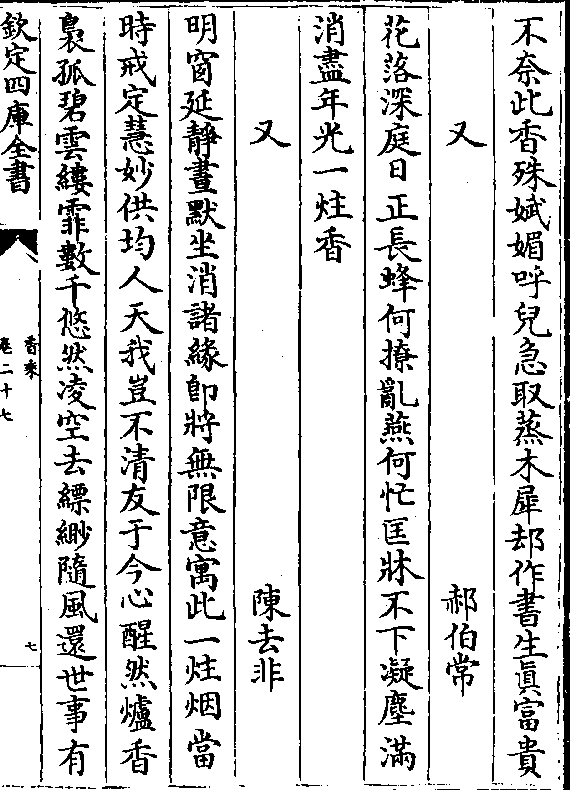 不奈此香殊娬媚呼兒急取蒸木犀却作書生眞富貴
又　郝伯常
花落深庭日正長蜂何撩亂燕何忙匡牀不下凝塵滿
消盡年光一炷香
又　陳去非
明窗延靜晝默坐消諸緣卽將無限意寓此一炷烟當
時戒定慧妙供均人天我豈不清友于今心醒然爐香
裊孤碧雲縷霏數千悠然凌空去縹緲隨風還世事有
欽定四庫全書
香乘
卷二十七
七